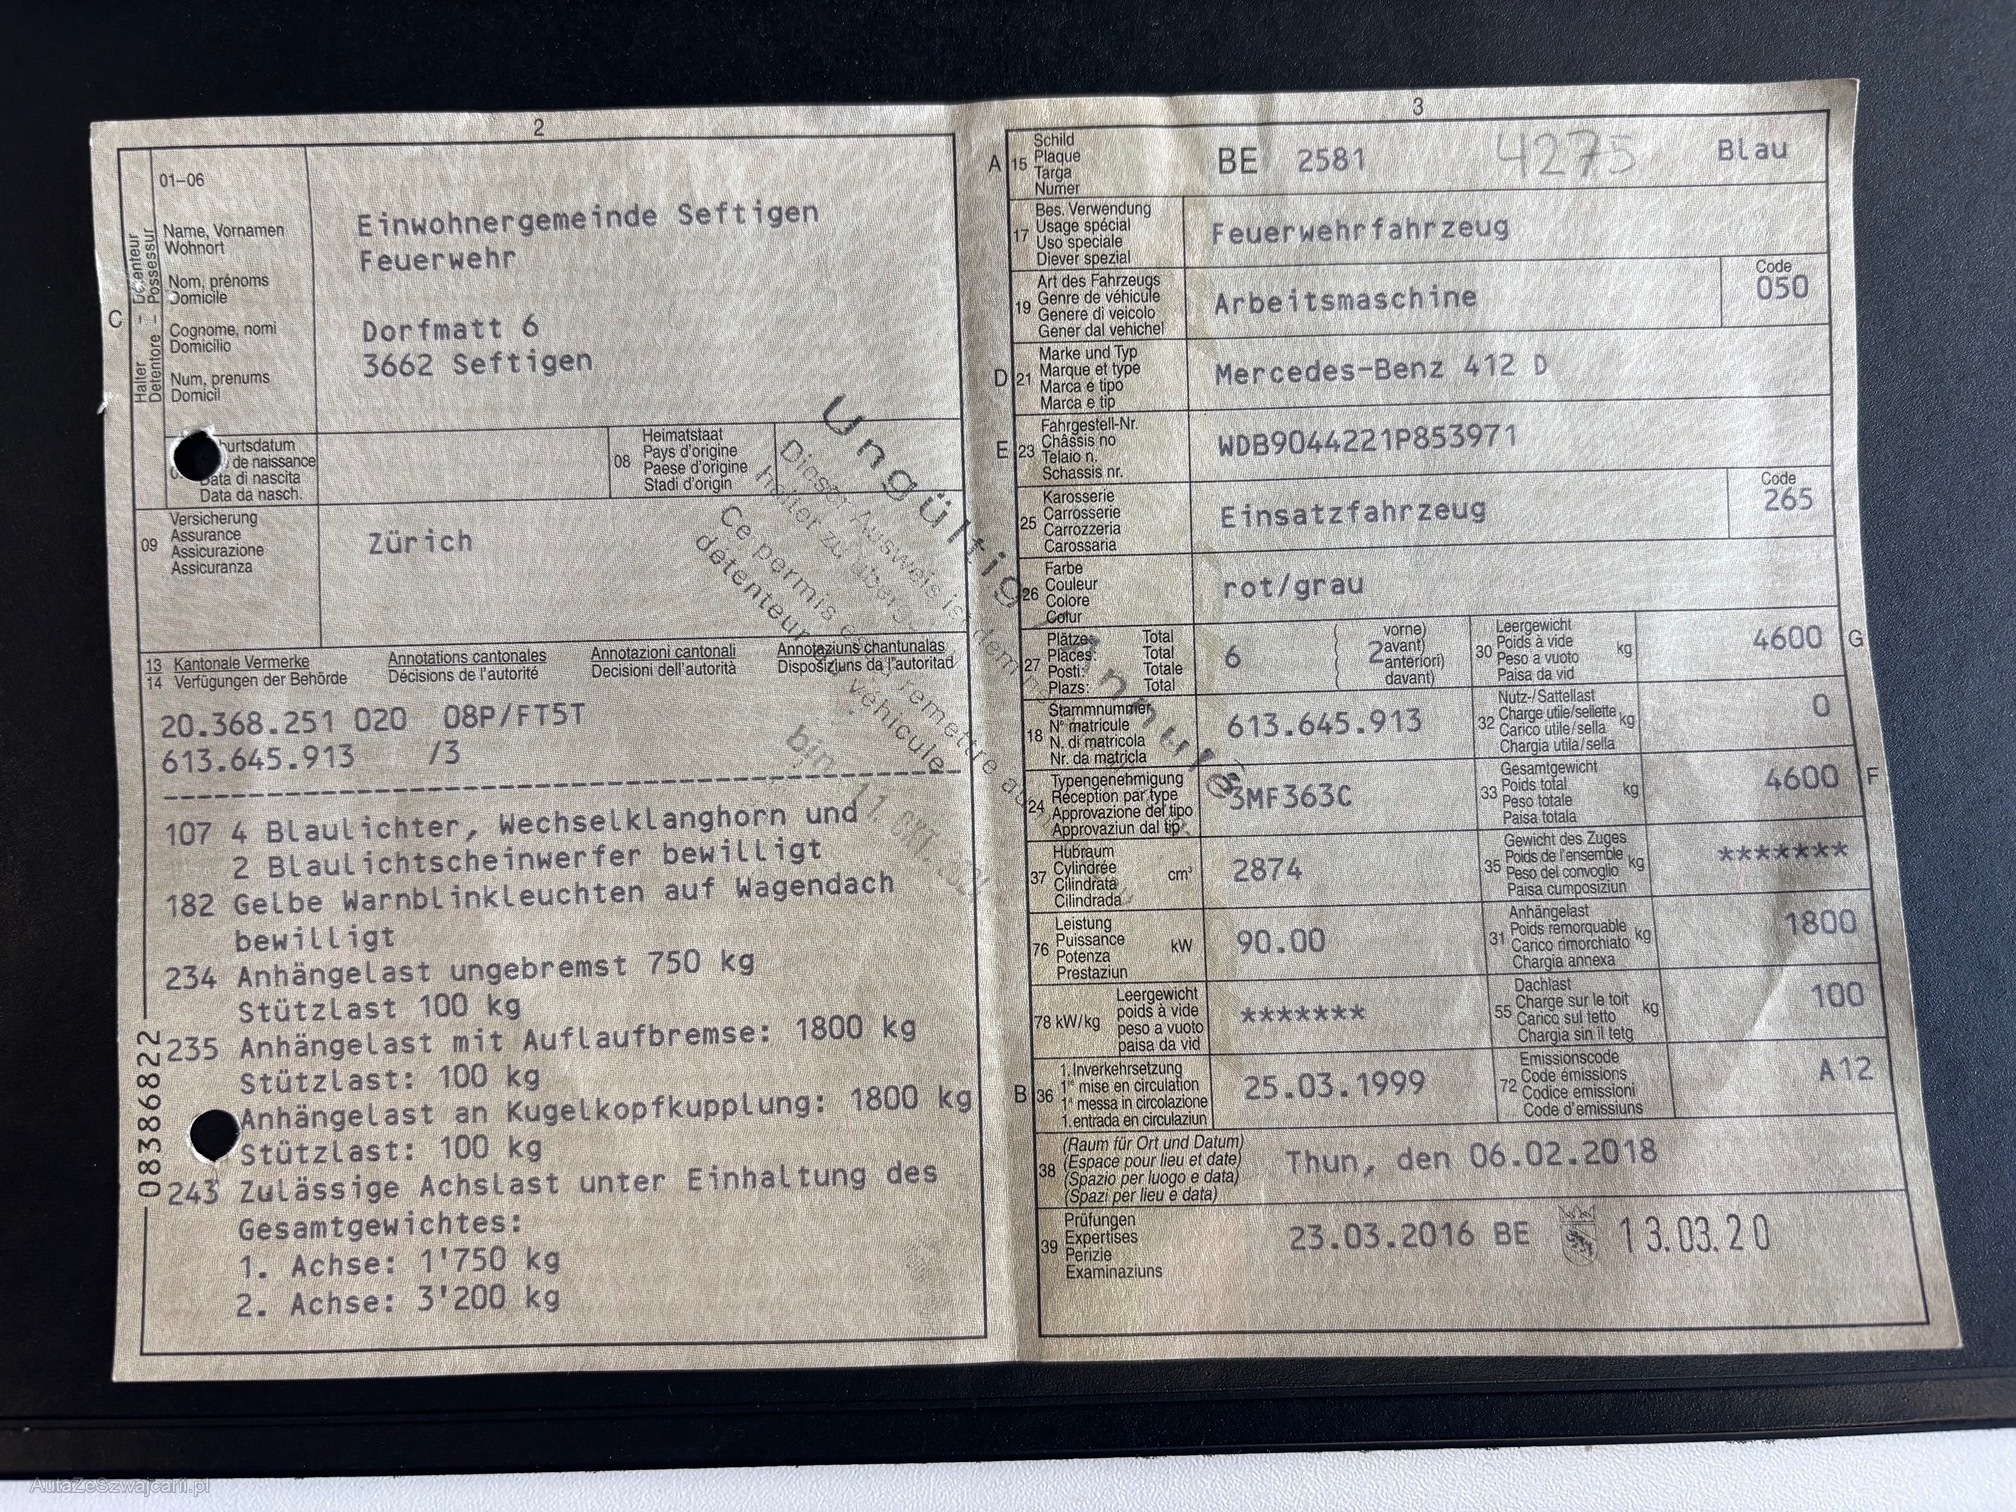 2
01–06
Halter - Détenteur
Detentore - Possessur
C
Name, Vornamen
Wohnort
Nom, prénoms
Domicile
Cognome, nomi
Domicilio
Num, prenums
Domicil
Einwohnergemeinde Seftigen
Feuerwehr
Dorfmatt 6
3662 Seftigen
de naissance
Data di nascita
Data da nasch.
08
Heimatstaat
Pays d'origine
Paese d'origine
Stadi d'origin
09
Versicherung
Assurance
Assicurazione
Assicuranza
Zürich
13 Kantonale Vermerke Annotations cantonales Annotazioni cantonali Annotaziuns chantunalas
14 Verfügungen der Behörde Décisions de l'autorité Decisioni dell'autorità Disposiziuns da l'autoritad
20.368.251 020 08P/FT5T
613.645.913 /3
107 4 Blaulichter, Wechselklanghorn und
2 Blaulichtscheinwerfer bewilligt
182 Gelbe Warnblinkleuchten auf Wagendach
bewilligt
234 Anhängelast ungebremst 750 kg
Stützlast 100 kg
235 Anhängelast mit Auflaufbremse: 1800 kg
Stützlast: 100 kg
Anhängelast an Kugelkopfkupplung: 1800 kg
Stützlast: 100 kg
243 Zulässige Achslast unter Einhaltung des
Gesamtgewichtes:
1. Achse: 1'750 kg
2. Achse: 3'200 kg
08386822
Ungültig
Annulé
Dieser Ausweis ist dem
halter zu
Ce permis est remettre au
détenteur véhicule
3
A 15
Schild
Plaque
Targa
Numer
BE 2581 4275 Blau
17
Bes. Verwendung
Usage spécial
Uso speciale
Diever spezial
Feuerwehrfahrzeug
19
Art des Fahrzeugs
Genre de véhicule
Genere di veicolo
Gener dal vehichel
Arbeitsmaschine
Code
050
D 21
Marke und Typ
Marque et type
Marca e tipo
Marca e tip
Mercedes-Benz 412 D
E 23
Fahrgestell-Nr.
Châssis no
Telaio n.
Schassis nr.
WDB9044221P853971
25
Karosserie
Carrosserie
Carrozzeria
Carossaria
Einsatzfahrzeug
Code
265
26
Farbe
Couleur
Colore
Colur
rot/grau
27
Plätze: Total
Places: Total
Posti: Totale
Plazs: Total
6
2
vorne)
avant)
anteriori)
davant)
30
Leergewicht
Poids à vide
Peso a vuoto
Paisa da vid
kg
4600
G
18
Stammnummer
N° matricule
N. di matricola
Nr. da matricla
613.645.913
32
Nutz-/Sattellast
Charge utile/sellette
Carico utile/sella
Chargia utila/sella
kg
0
24
Typengenehmigung
Réception par type
Approvazione del tipo
Approvaziun dal tip
3MF363C
33
Gesamtgewicht
Poids total
Peso totale
Paisa totala
kg
4600
F
37
Hubraum
Cylindrée
Cilindrata
Cilindrada
cm³
2874
35
Gewicht des Zuges
Poids de l'ensemble
Peso del convoglio
Paisa cumposiziun
kg
*******
76
Leistung
Puissance
Potenza
Prestaziun
kW
90.00
31
Anhängelast
Poids remorquable
Carico rimorchiato
Chargia annexa
kg
1800
78 kW/kg
Leergewicht
poids à vide
peso a vuoto
paisa da vid
*******
55
Dachlast
Charge sur le toit
Carico sul tetto
Chargia sin il tetg
kg
100
B 36
1. Inverkehrsetzung
1re mise en circulation
1a messa in circolazione
1. entrada en circulaziun
25.03.1999
72
Emissionscode
Code émissions
Codice emissioni
Code d'emissiuns
A12
38
(Raum für Ort und Datum)
(Espace pour lieu et date)
(Spazio per luogo e data)
(Spazi per lieu e data)
Thun, den 06.02.2018
39
Prüfungen
Expertises
Perizie
Examinaziuns
23.03.2016 BE 13.03.20
AutaZeSzwajcarii.pl